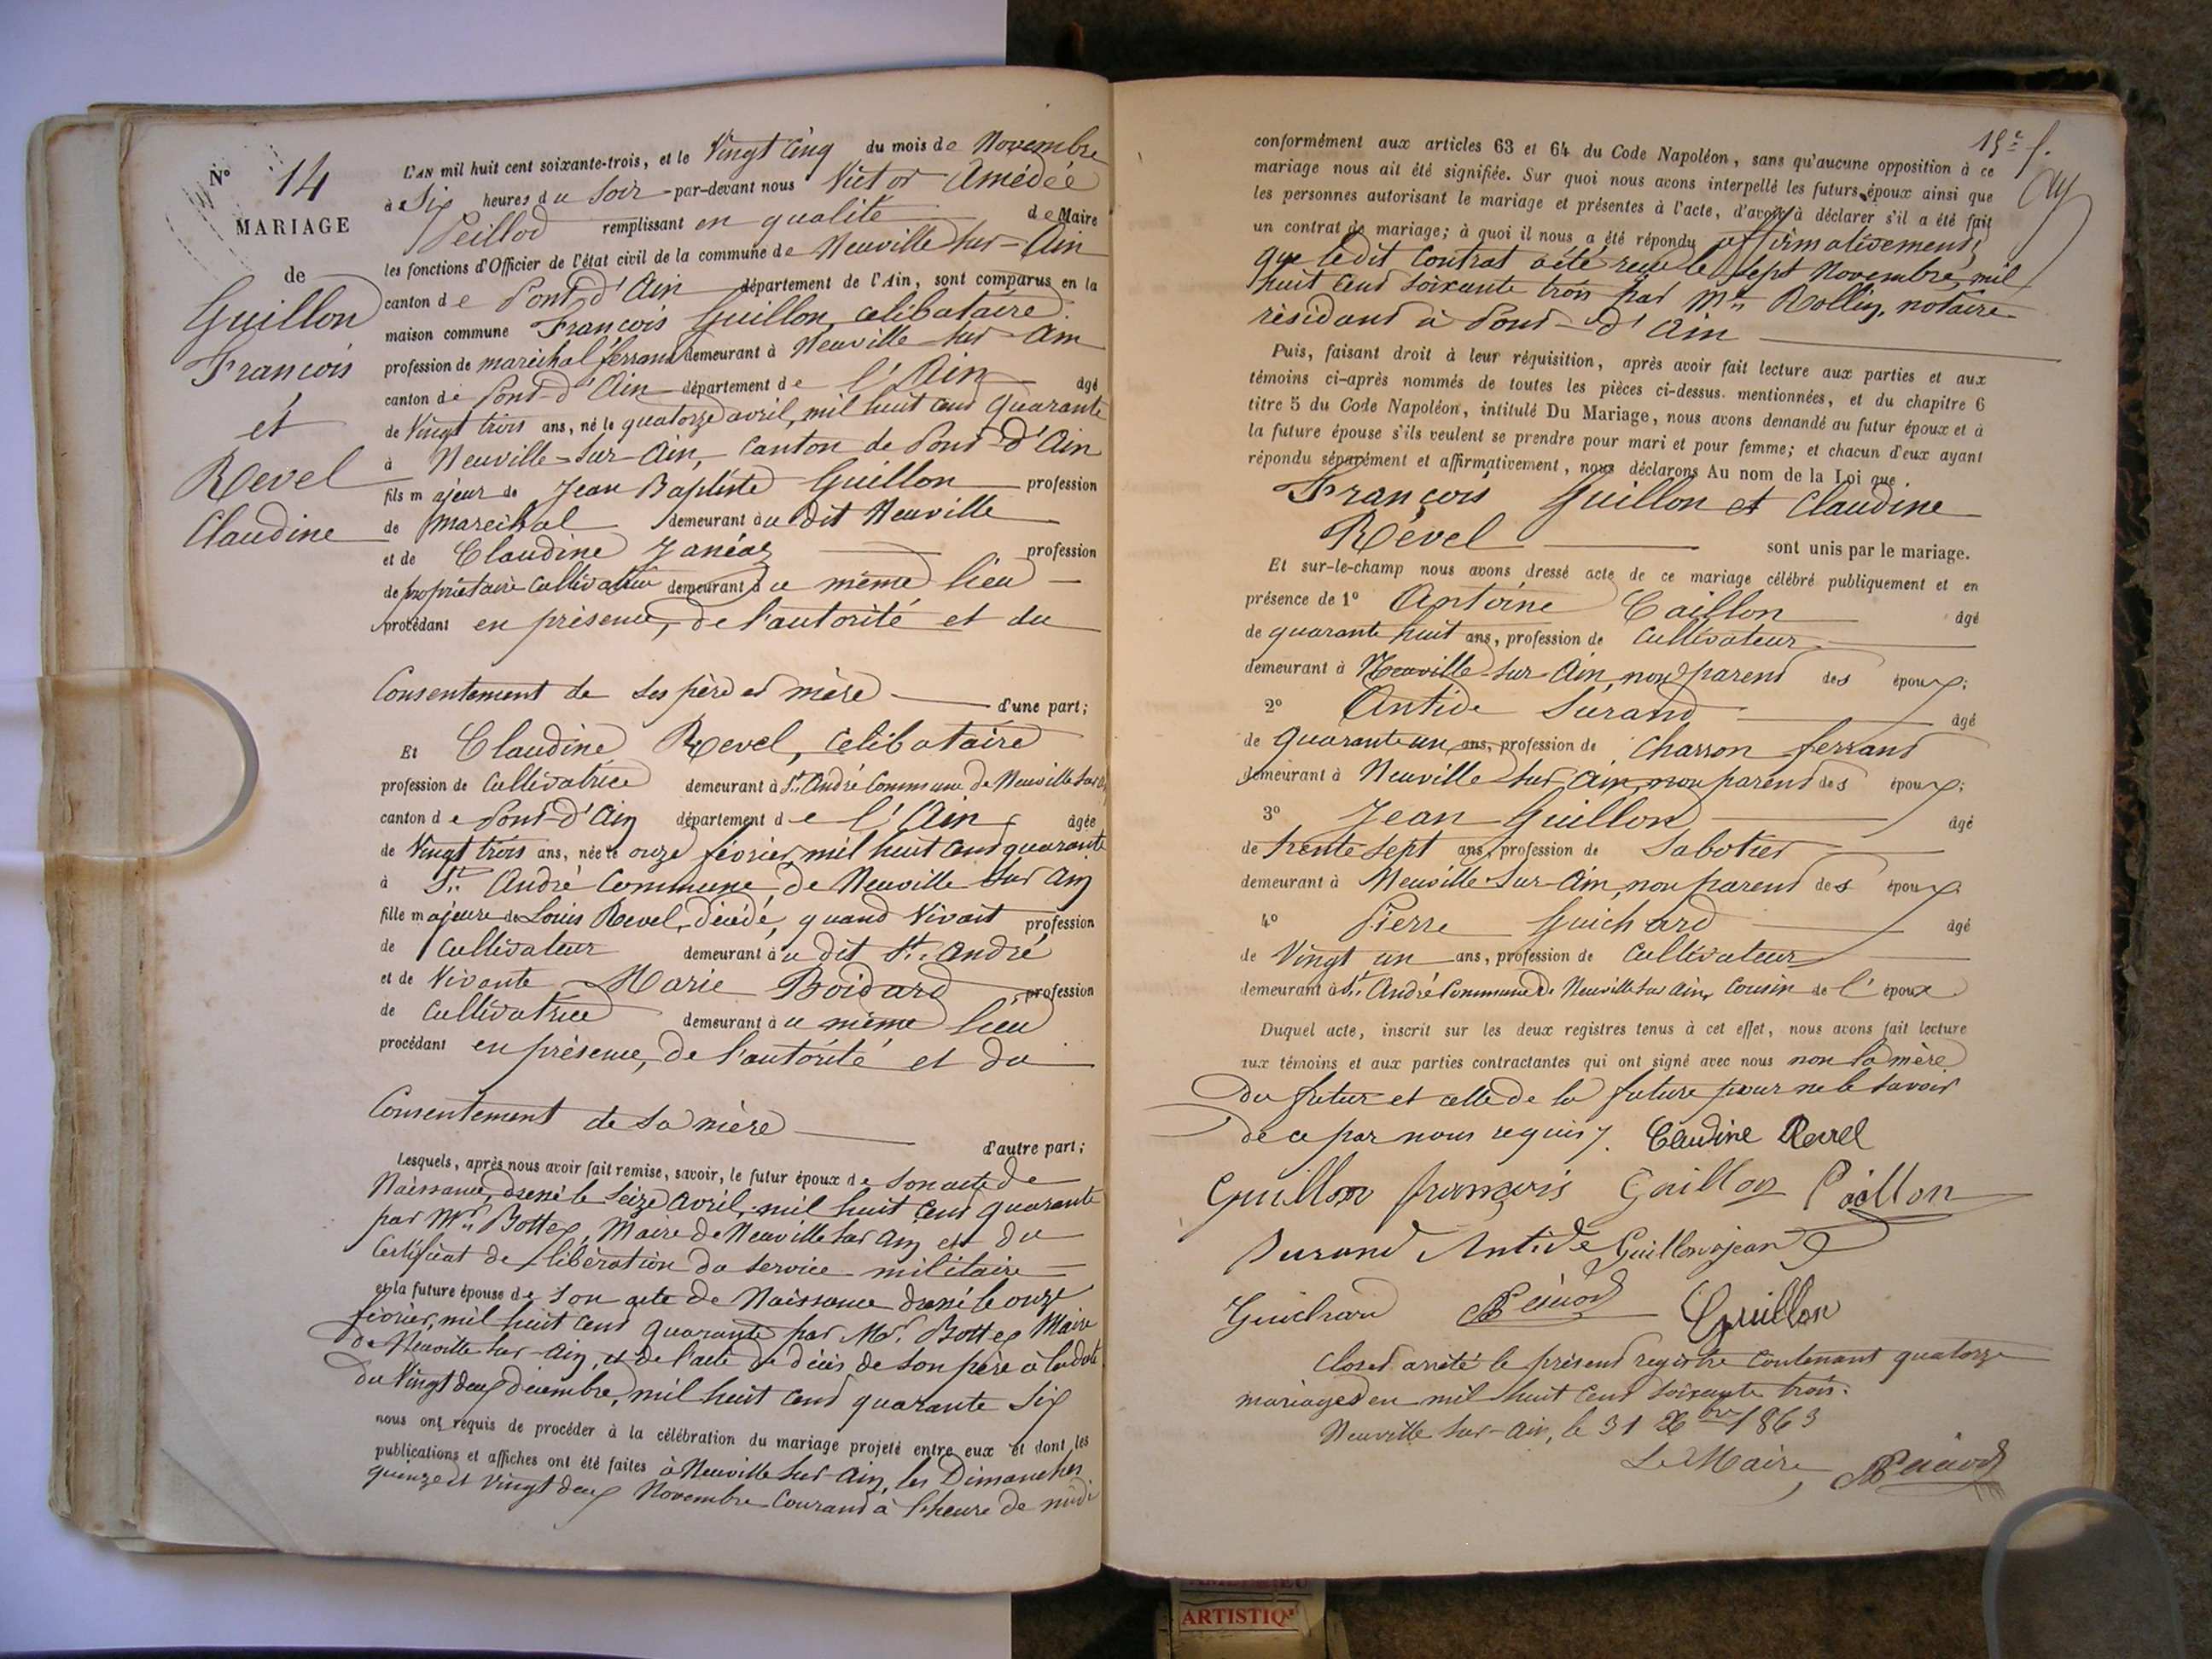 N° 14
MARIAGE
de
Guillon
François
et
Revel
Claudine
L'AN mil huit cent soixante-trois, et le Vingt Cinq du mois de Novembre
à Six heures du Soir par-devant nous Victor Amédée
Peillod remplissant en qualité de Maire
les fonctions d'Officier de l'état civil de la commune de Neuville sur-Ain
canton de Pont d'Ain département de l'Ain, sont comparus en la
maison commune François Guillon, celibataire
profession de maréchal ferrant demeurant à Neuville sur-Ain
canton de Pont-d'Ain département de l'Ain âgé
de Vingt trois ans, né le quatorze avril, mil huit cent Quarante
à Neuville-sur-Ain, Canton de Pont-d'Ain
fils majeur de Jean Baptiste Guillon profession
de marechal demeurant au dit Neuville
et de Claudine profession
de propriétaire cultivatrice demeurant au même lieu
procédant en présence, de l'autorité et du
Consentement de ses père et mère d'une part;
Et Claudine Revel, célibataire
profession de Cultivatrice demeurant à St. André Commune de Neuville sur Ain
canton de Pont-d'Ain département de l'Ain âgée
de Vingt trois ans, née le onze février mil huit cent quarante
à St. André Commune de Neuville sur Ain
fille majeure de Louis Revel, décédé, quand Vivait profession
de Cultivateur demeurant au dit St. André
et de Vivante Marie Boidard profession
de Cultivatrice demeurant au même lieu
procédant en présence, de l'autorité et du
Consentement de sa mère d'autre part;
Lesquels, après nous avoir fait remise, savoir, le futur époux de son acte de
Naissance, dressé le Seize avril, mil huit cent quarante
par Mr. Bottex, Maire de Neuville sur Ain et du
Certificat de libération du service militaire
et la future épouse de son acte de Naissance dressé le onze
février, mil huit cent quarante par Mr. Bottex Maire
de Neuville sur-Ain, et de l'acte de décès de son père à la date
du Vingt deux décembre, mil huit cent quarante six
nous ont requis de procéder à la célébration du mariage projeté entre eux et dont les
publications et affiches ont été faites à Neuville sur-Ain, les Dimanches
quinze et Vingt deux Novembre Courant à l'heure de midi
15e f.
conformément aux articles 63 et 64 du Code Napoléon, sans qu'aucune opposition à ce
mariage nous ait été signifiée. Sur quoi nous avons interpellé les futurs époux ainsi que
les personnes autorisant le mariage et présentes à l'acte, d'avoir à déclarer s'il a été fait
un contrat de mariage; à quoi il nous a été répondu affirmativement,
que ledit Contrat a été reçu le sept Novembre, mil
huit cent soixante trois par Me Rollin, notaire
résidant à Pont-d'Ain
Puis, faisant droit à leur réquisition, après avoir fait lecture aux parties et aux
témoins ci-après nommés de toutes les pièces ci-dessus mentionnées, et du chapitre 6
titre 5 du Code Napoléon, intitulé Du Mariage, nous avons demandé au futur époux et à
la future épouse s'ils veulent se prendre pour mari et pour femme; et chacun d'eux ayant
répondu séparément et affirmativement, nous déclarons Au nom de la Loi que
François Guillon et Claudine
Revel sont unis par le mariage.
Et sur-le-champ nous avons dressé acte de ce mariage célébré publiquement et en
présence de 1° Antoine Caillon âgé
de quarante huit ans, profession de Cultivateur
demeurant à Neuville-sur-Ain, non parent des époux;
2° Antide Surand âgé
de Quarante un ans, profession de Charron ferrant
demeurant à Neuville sur Ain, non parent des époux;
3° Jean Guillon âgé
de trente sept ans, profession de Sabotier
demeurant à Neuville-sur-Ain, non parent des époux
4° Pierre Guichard âgé
de Vingt un ans, profession de Cultivateur
demeurant à St. André Commune de Neuville sur Ain, Cousin de l'épouse
Duquel acte, inscrit sur les deux registres tenus à cet effet, nous avons fait lecture
aux témoins et aux parties contractantes qui ont signé avec nous non la mère
du futur et celle de la future pour ne le savoir
de ce par nous requis. Claudine Revel
Guillon françois Guillon Caillon
Surand Antide Guillon jean
Guichard Guillon
Clos et arrêté le présent registre Contenant quatorze
mariages en mil huit cent soixante trois.
Neuville sur-Ain, le 31 Xbre 1863
Le Maire,
ARTISTIQ